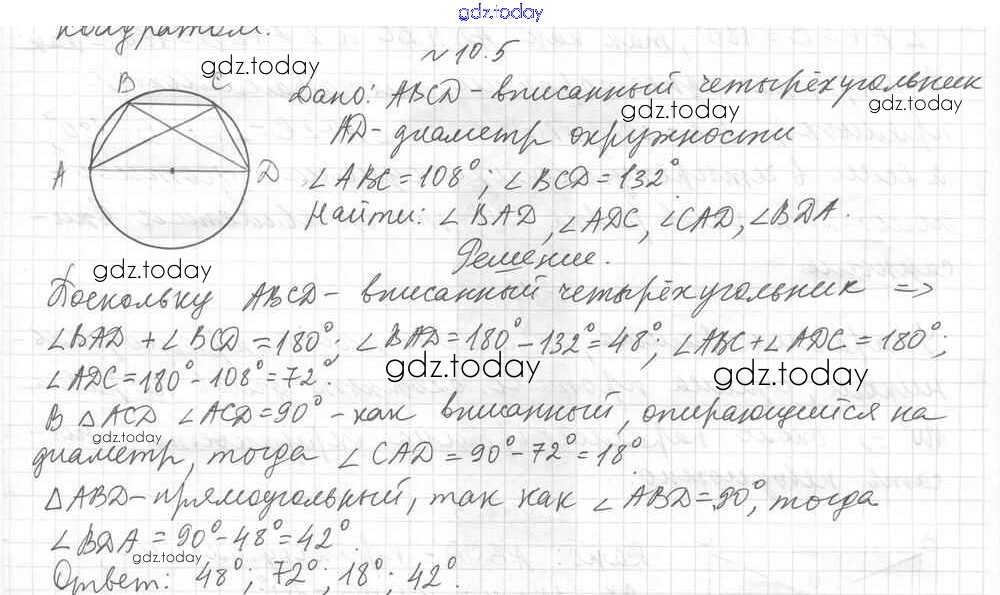 gdz.today
квадратом.
№10.5
gdz.today
B C
Дано: ABCD - вписанный четырёхугольник
gdz.today
gdz.today
AD - диаметр окружности
A D
∠ABC = 108°, ∠BCD = 132°
Найти: ∠BAD, ∠ADC, ∠CAD, ∠BDA.
Решение.
gdz.today
Поскольку ABCD - вписанный четырёхугольник =>
∠BAD + ∠BCD = 180°; ∠BAD = 180° - 132° = 48°; ∠ABC + ∠ADC = 180°;
∠ADC = 180° - 108° = 72°.
gdz.today
gdz.today
В △ACD ∠ACD = 90° - как вписанный, опирающийся на
gdz.today
диаметр, тогда ∠CAD = 90° - 72° = 18°.
△ABD - прямоугольный, так как ∠ABD = 90°, тогда
∠BDA = 90° - 48° = 42°.
gdz.today
Ответ: 48°; 72°; 18°; 42°.